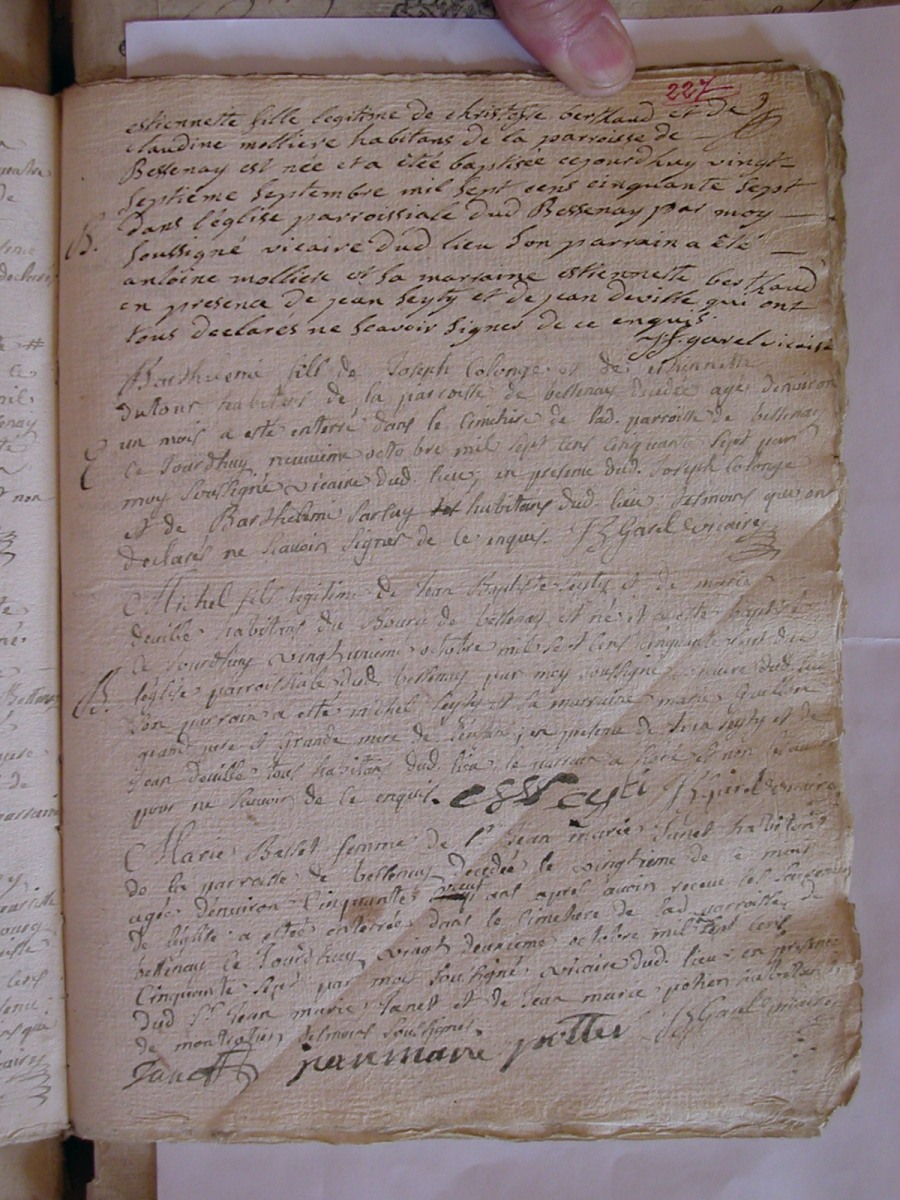 227
estiennette fille legitime de christofle berthaud et de
claudine molliere habitans de la parroisse de
Bessenay est née et a étée baptisée cejourdhuy vingt
septieme septembre mil sept cens cinquante sept
dans l'église parroissiale dud Bessenay par moy
B. soussigné vicaire dud lieu son parrain a été
antoine molliere et sa marraine estiennette berthaud
en presence de jean seyty et de jean deville qui ont
tous declarés ne scavoir signer de ce enquis
garel vicaire
Barthelemi fils de Joseph Colonge et de estiennette
dutour habitans de la parroisse de bessenay decedée agé denviron
un mois a esté enterré dans le cimetiere de lad. parroisse de bessenay
ce Jourdhuy neuvieme octobre mil sept cens cinquante sept par
moy soussigné vicaire dud. lieu, en presence dud. Joseph Colonge
et de Barthelemi habitans dud. lieu temoins qui ont
declarés ne scavoir signer de ce enquis. Garel vicaire
Michel fils legitime de Jean Baptiste seyty et de marie
deville habitans du Bourg de bessenay est né et a esté baptisé
ce Jourdhuy vingt unieme octobre mil sept cens cinquante sept dans
B. léglise parroissiale dud. bessenay par moy soussigné vicaire dud. lieu
son parrain a esté michel seyty et sa marraine marie
grand pere et grande mere de lenfant, en presence de seyty et de
jean deville tous habitans dud. lieu, le parrain a signé et non les autres
pour ne scavoir de ce enquis. Garel vicaire
Marie Basset femme de Sr. Jean marie Janet habitans
de la parroisse de bessenay decedée le vingtieme de ce mois
agée denviron Cinquante neuf ans apres avoir receu les sacremens
de léglise a estée enterrée dans le cimetiere de lad. parroisse de
bessenay ce Jourdhuy vingt deuxieme octobre mil sept cens
Cinquante sept par moy soussigné vicaire dud. lieu en presence
dud Sr. Jean marie Janet et de Jean marie habitans
de montrotier temoins soussignés. Garel vicaire
Janet jean marie